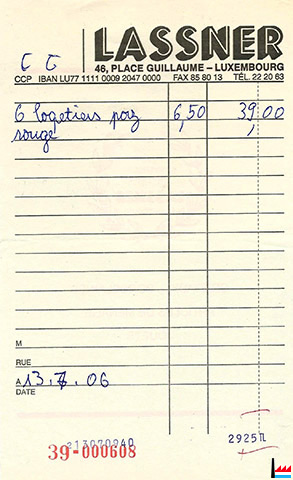 LASSNER
46, PLACE GUILLAUME – LUXEMBOURG
C C
CCP IBAN LU77 1111 0009 2047 0000 FAX 85 80 13 TÉL. 22 20 63
6 6,50 39,00
rouge
M
RUE
A 13.7.06
DATE
213070240
39-000608 2925